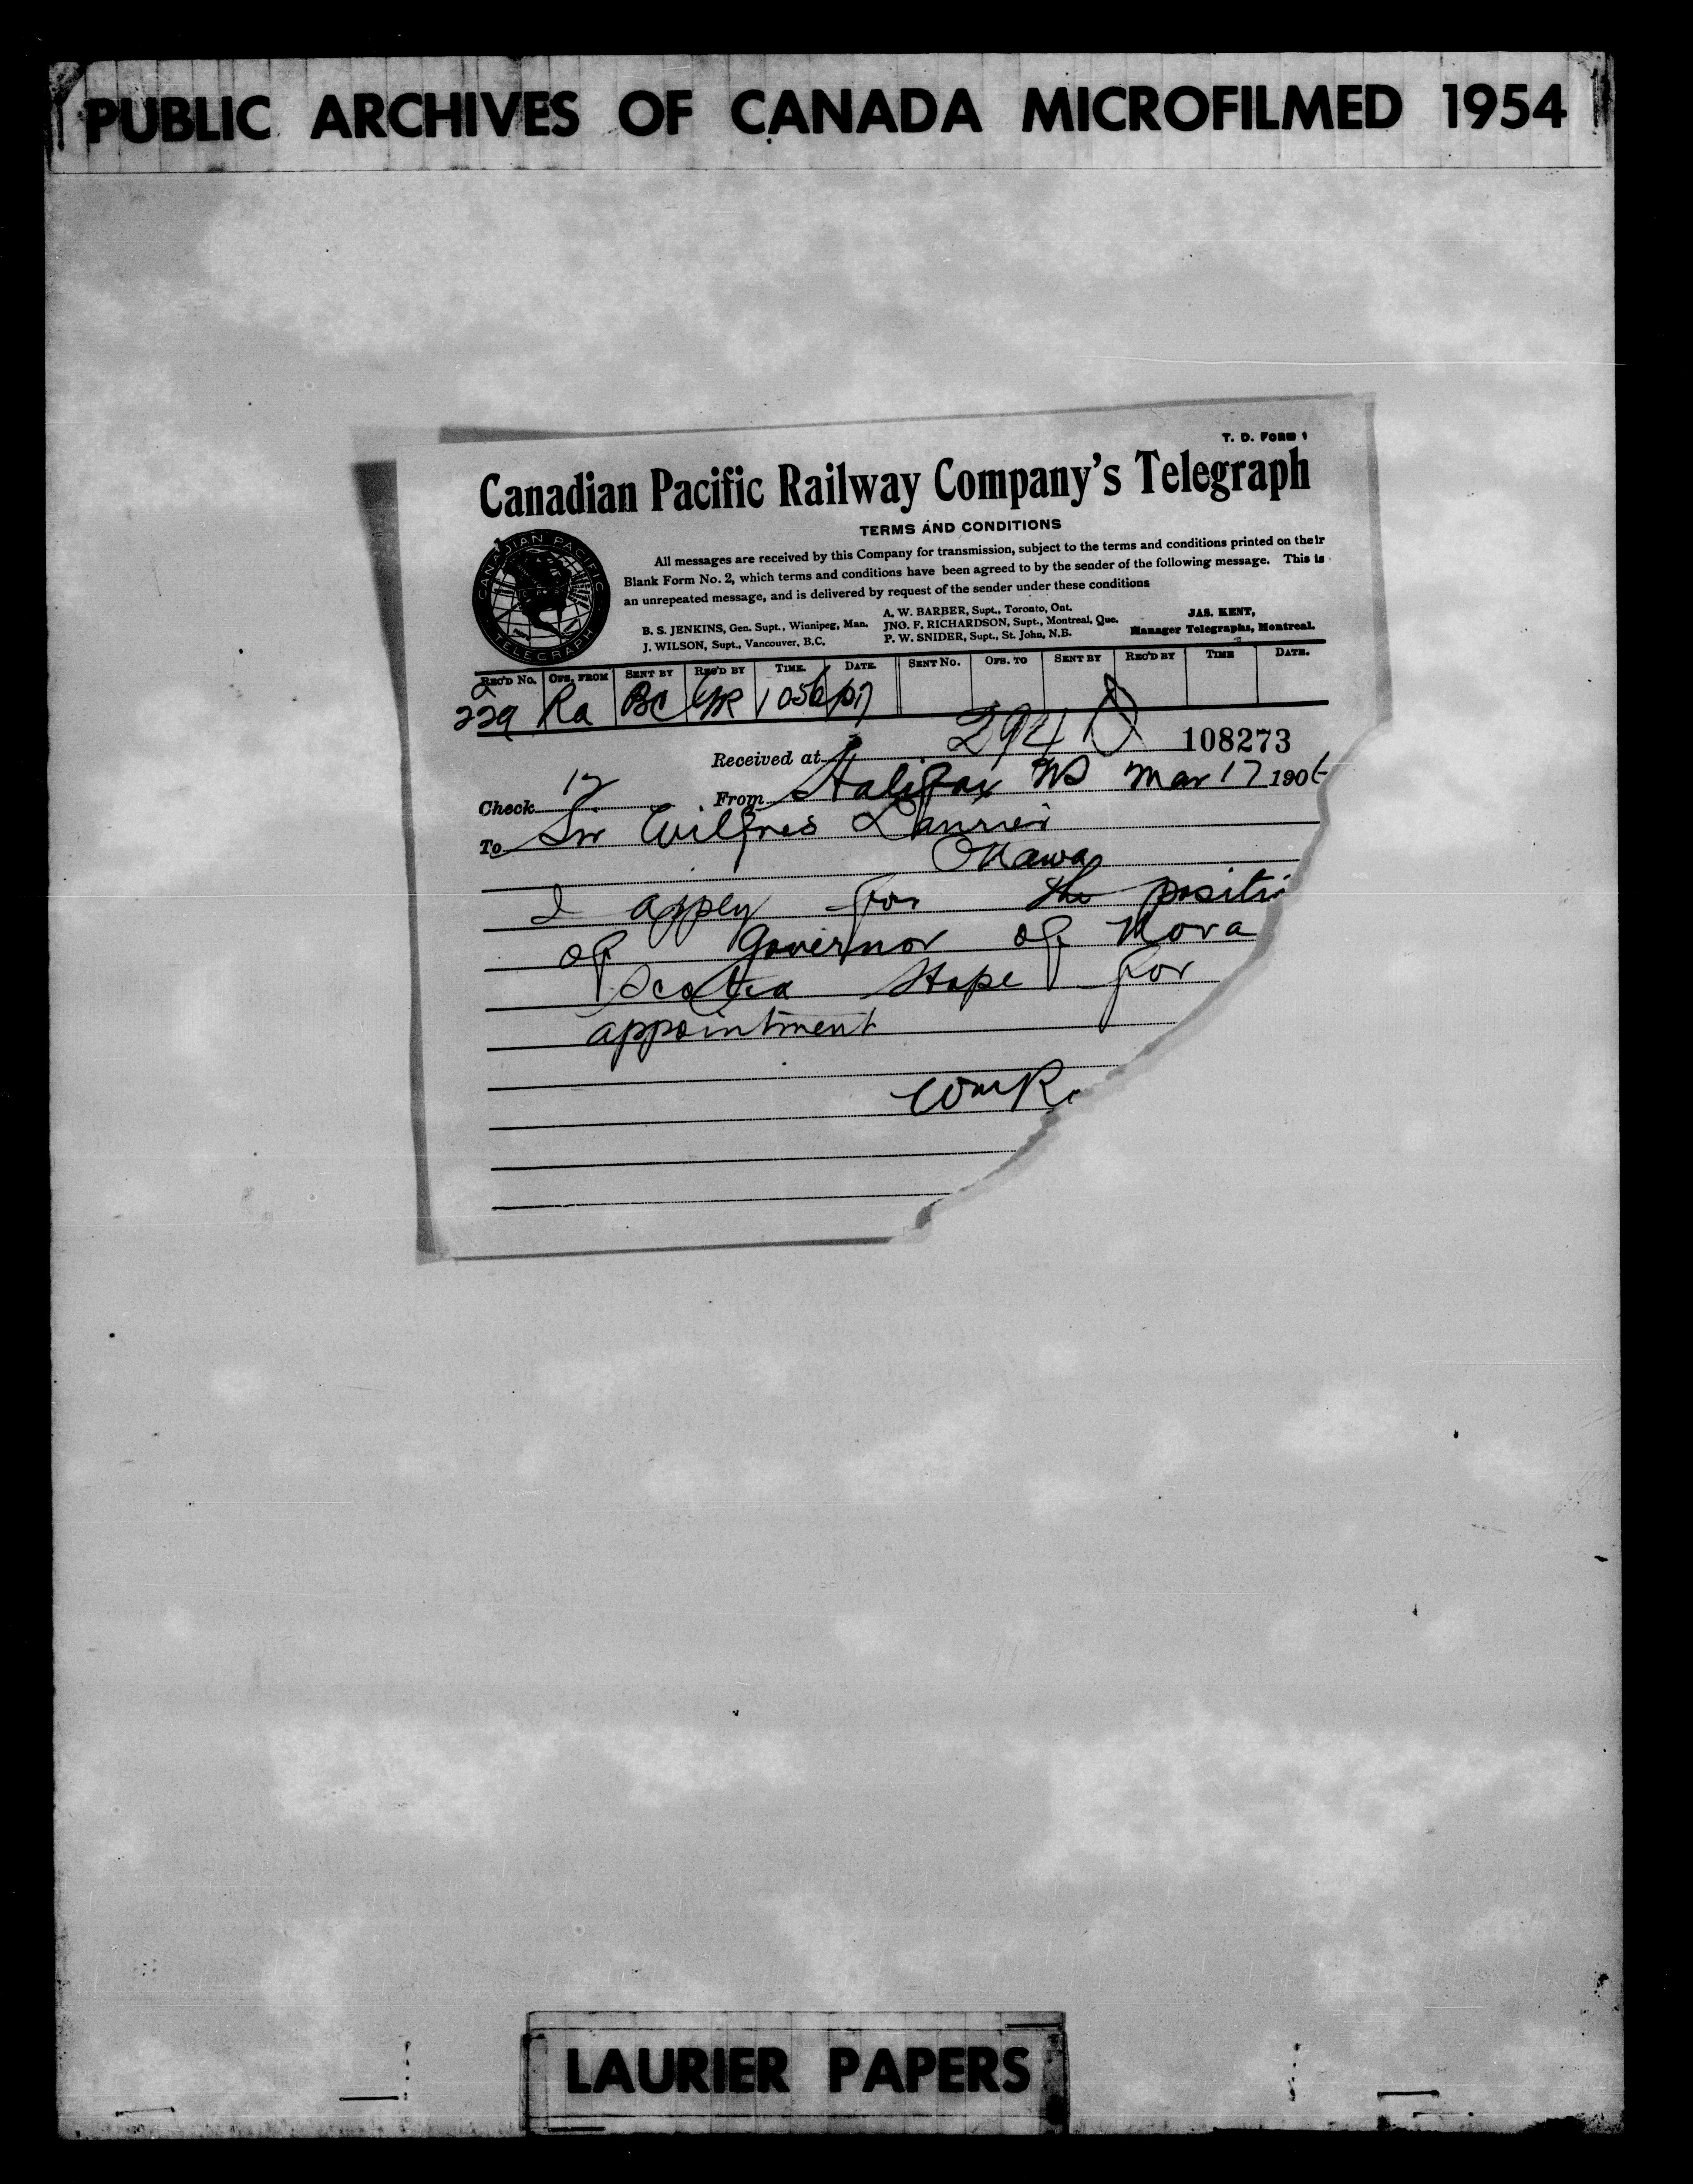 PUBLIC ARCHIVES OF CANADA MICROFILMED 1954
T. D. FORM 1
Canadian Pacific Railway Company's Telegraph
TERMS AND CONDITIONS
All messages are received by this Company for transmission, subject to the terms and conditions printed on their
Blank Form No. 2, which terms and conditions have been agreed to by the sender of the following message. This is
an unrepeated message, and is delivered by request of the sender under these conditions
CANADIAN PACIFIC TELEGRAPH
A. W. BARBER, Supt., Toronto, Ont.
B. S. JENKINS, Gen. Supt., Winnipeg, Man. JNO. F. RICHARDSON, Supt., Montreal, Que.
J. WILSON, Supt., Vancouver, B.C. P. W. SNIDER, Supt., St. John, N.B.
JAS. KENT,
Manager Telegraphs, Montreal.
REC'D No. OFS. FROM SENT BY REC'D BY TIME. DATE. SENT No. OFS. TO SENT BY REC'D BY TIME DATE.
229 Ra BC
294
108273
Received at
Check 12 From Halifax NS Mar 17 190
To Sir Wilfred Laurier
Ottawa
I apply for the positi
of Governor of Nova
Scotia Hope for
appointment
Wm R
LAURIER PAPERS